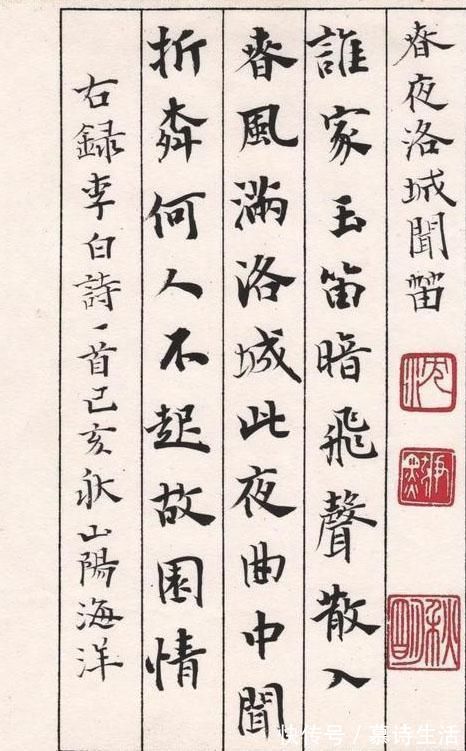 春夜洛城聞笛
誰家玉笛暗飛聲散入
春風滿洛城此夜曲中聞
折桺何人不起故園情
右録李白詩一首己亥秋山陽海洋
快传号 / 慕诗生活